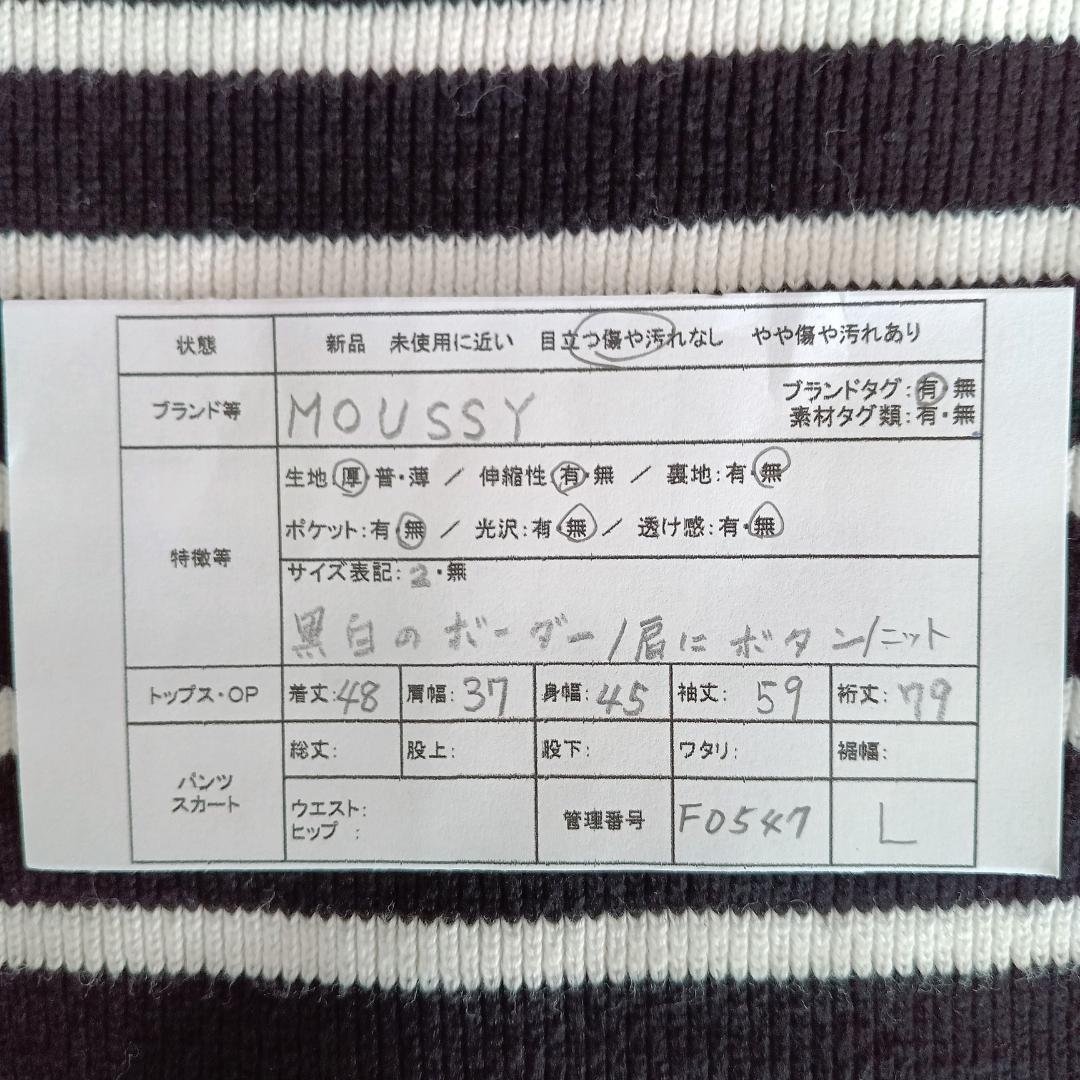 状態 新品 未使用に近い 目立つ傷や汚れなし やや傷や汚れあり
ブランド等 MOUSSY ブランドタグ:有・無
素材タグ類:有・無
特徴等
生地:厚・普・薄 / 伸縮性:有・無 / 裏地:有・無
ポケット:有・無 / 光沢:有・無 / 透け感:有・無
サイズ表記:2・無
黒白のボーダー/肩にボタン/ニット
トップス・OP 着丈:48 肩幅:37 身幅:45 袖丈:59 裄丈:79
パンツ
スカート
総丈: 股上: 股下: ワタリ: 裾幅:
ウエスト:
ヒップ :
管理番号 F0547 L